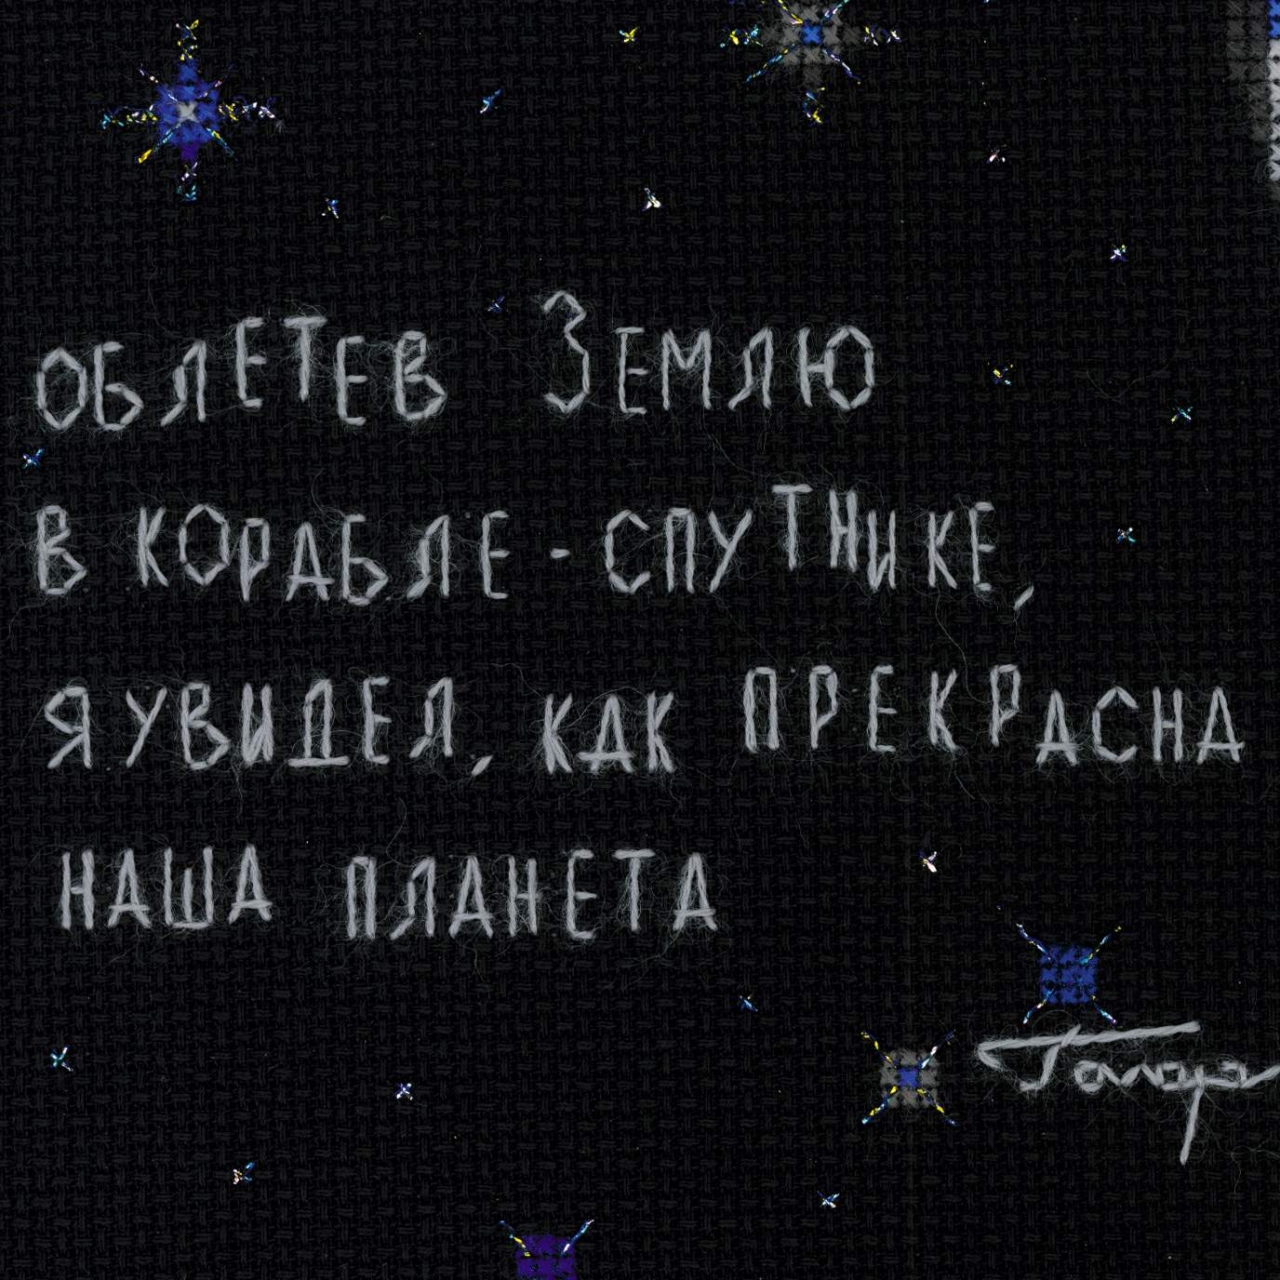 ОБЛЕТЕВ ЗЕМЛЮ
В КОРАБЛЕ-СПУТНИКЕ,
Я УВИДЕЛ, КАК ПРЕКРАСНА
НАША ПЛАНЕТА